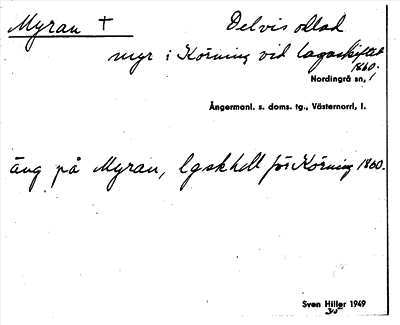 Myran † Delvis odlad
myr i Körning vid lagaskiftet
1860.
Nordingrå sn,
Ångermanl. s. doms. tg., Västernorrl, l.
äng på Myran, lgskhdl för Körning 1860.
Sven Hiller 1949